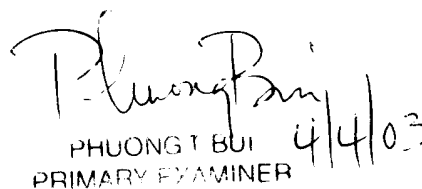 Phuong Bui
PHUONG T BUI 4/4/03
PRIMARY EXAMINER